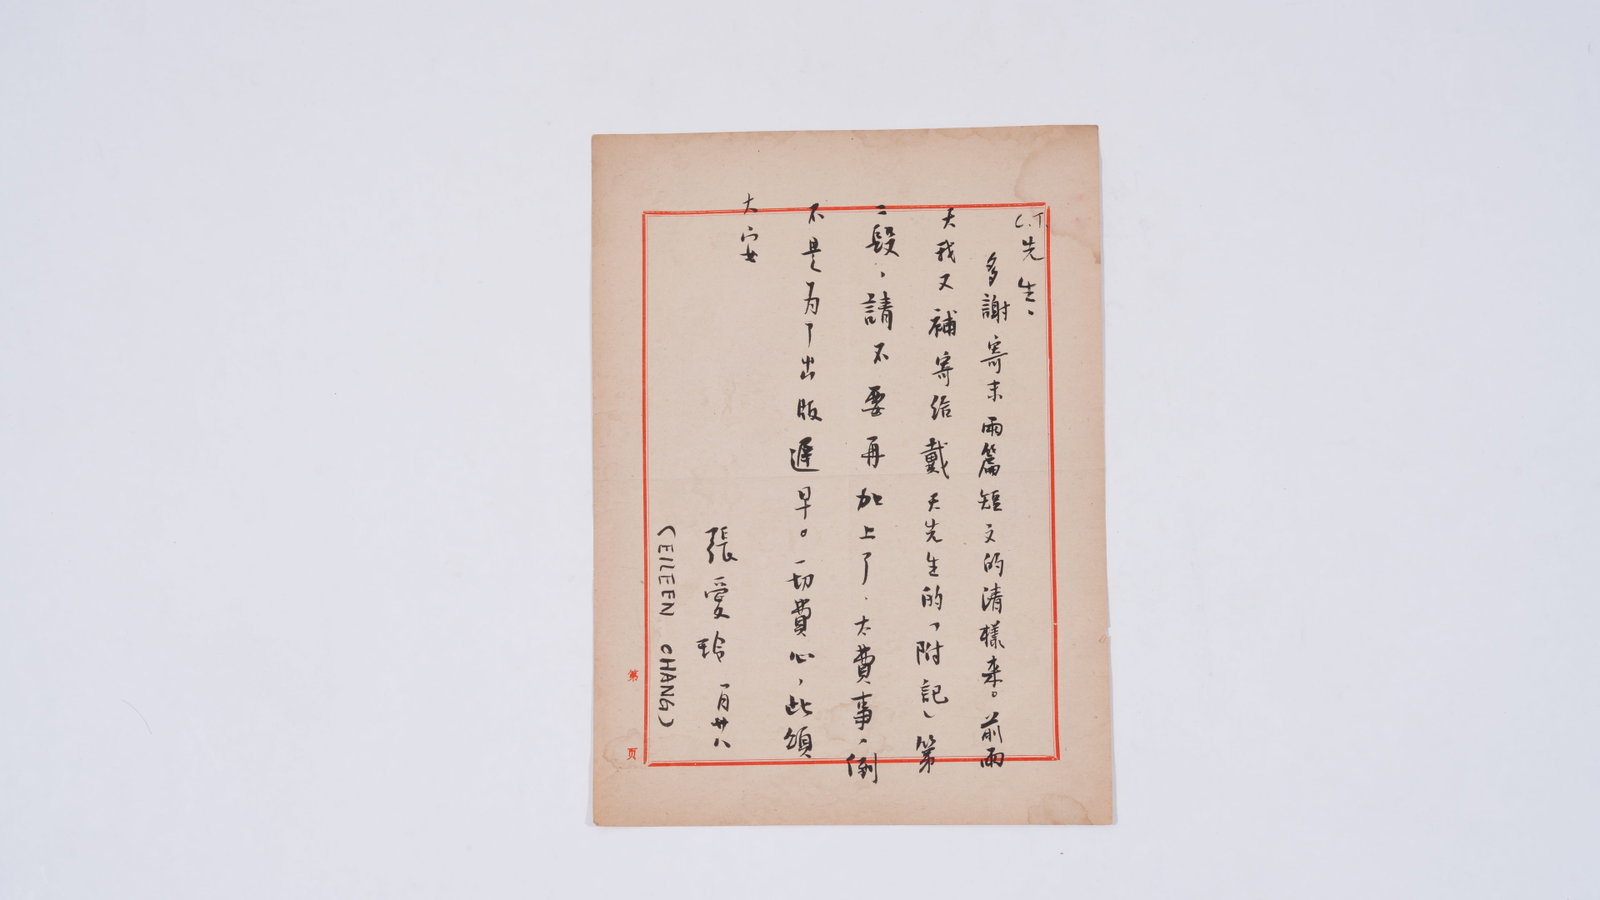 C.T.先生、
多謝寄來兩篇短文的清樣來。前兩
天我又補寄給戴天先生的「附記」第
二段，請不要再加上了，太費事，倒
不是为了出版遲早。一切費心，此頌
大安
張愛玲 一月廿八
(EILEEN CHANG)
第 页